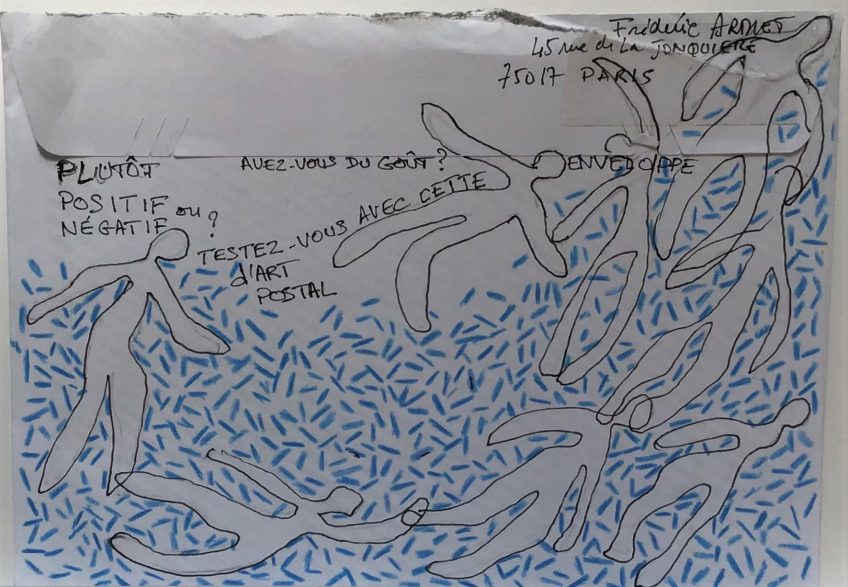 Fréderic ARDNET
45 rue de la JONQUIERE
75017 PARIS
PLUTÔT
POSITIF ou
NÉGATIF ?
AVEZ-VOUS DU GOÛT ?
TESTEZ-VOUS AVEC CETTE ENVELOPPE
d'ART
POSTAL